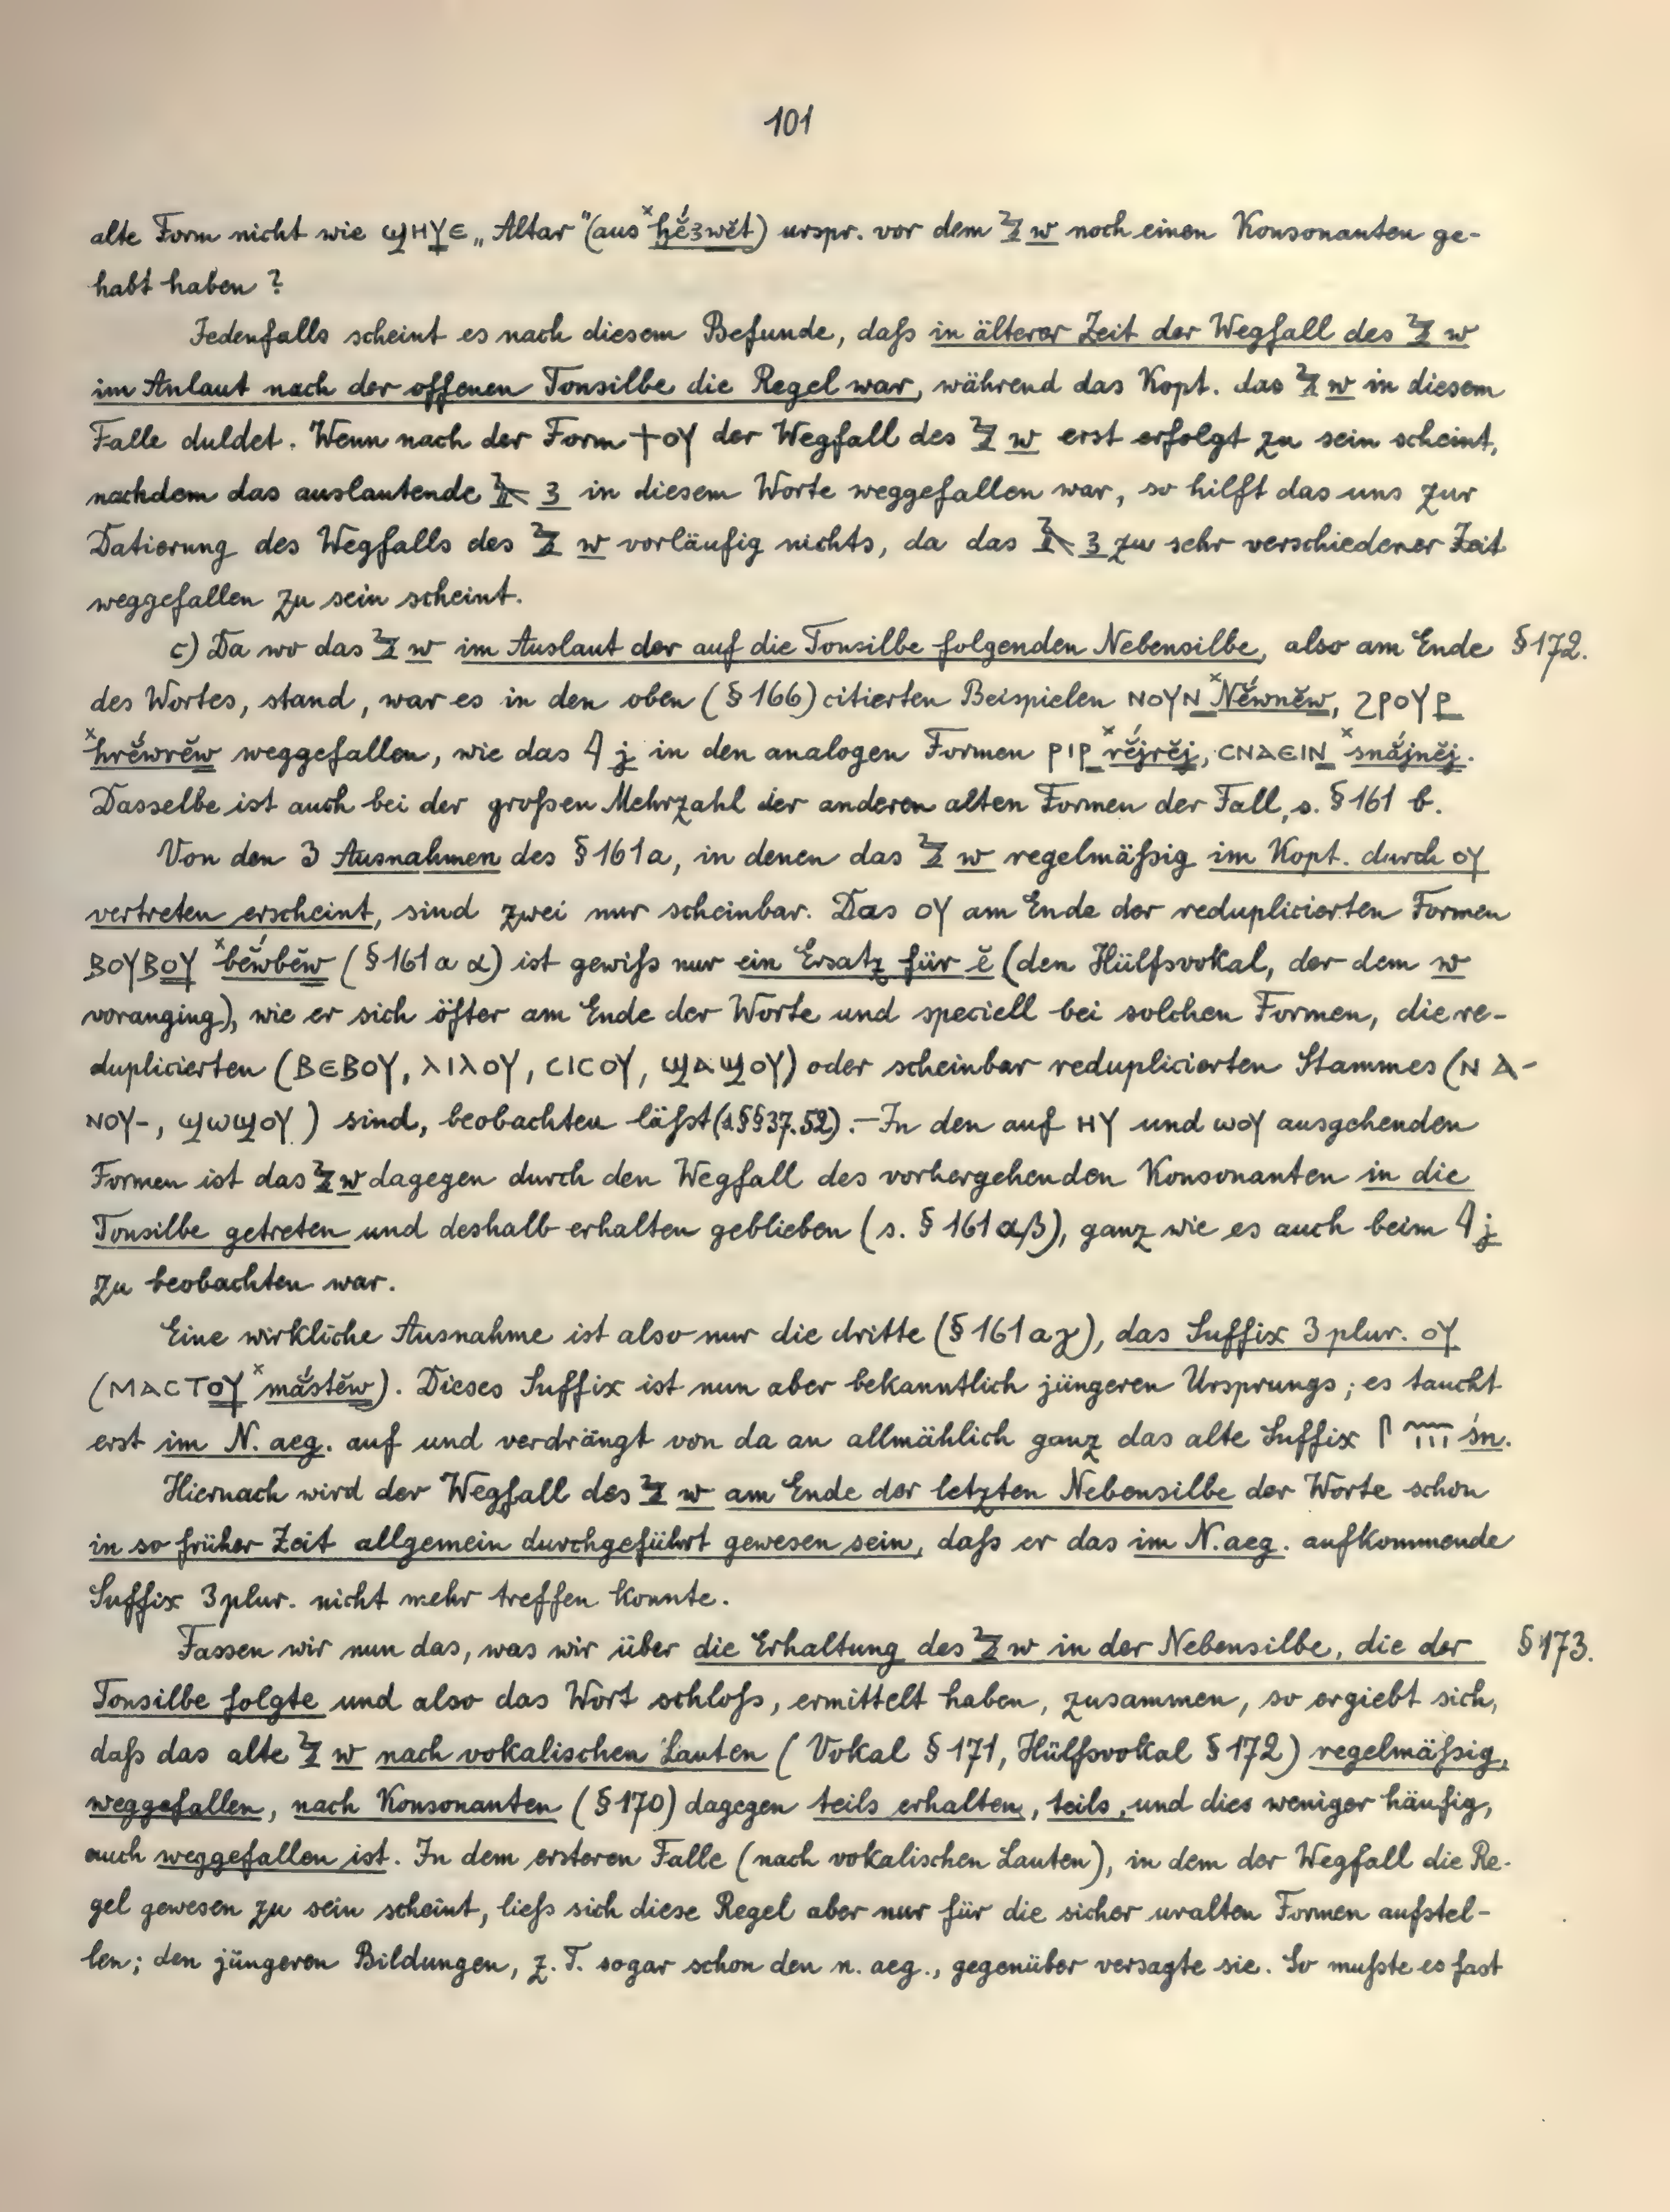 101
alte Form nicht wie ϣΗΥЄ „Altar“ (aus ˣḫé3wĕt) urspr. vor dem 𓅱 w noch einen Konsonanten ge-
habt haben?
Jedenfalls scheint es nach diesem Befunde, daſs in älterer Zeit der Wegfall des 𓅱 w
im Anlaut nach der offenen Tonsilbe die Regel war, während das Kopt. das 𓅱 w in diesem
Falle duldet. Wenn nach der Form ϯⲟⲩ der Wegfall des 𓅱 w erst erfolgt zu sein scheint,
nachdem das auslautende 𓄿 3 in diesem Worte weggefallen war, so hilft das uns zur
Datierung des Wegfalls des 𓅱 w vorläufig nichts, da das 𓄿 3 zu sehr verschiedener Zeit
weggefallen zu sein scheint.
c) Da wo das 𓅱 w im Auslaut der auf die Tonsilbe folgenden Nebensilbe, also am Ende § 172.
des Wortes, stand, war es in den oben (§ 166) citierten Beispielen ⲛⲟⲩⲛ ˣNĕ́wnĕw, ϩⲣⲟⲩⲣ
ˣhrĕ́wrĕw weggefallen, wie das 𓇋 j in den analogen Formen ⲣⲓⲣ ˣrĕ́jrĕj, ⲥⲛⲁⲉⲓⲛ ˣsnắjnĕj.
Dasselbe ist auch bei der groſsen Mehrzahl der anderen alten Formen der Fall, s. § 161 b.
Von den 3 Ausnahmen des § 161a, in denen das 𓅱 w regelmäſsig im Kopt. durch ⲟⲩ
vertreten erscheint, sind zwei nur scheinbar. Das ⲟⲩ am Ende der reduplicierten Formen
ⲃⲟⲩⲃⲟⲩ ˣbĕ́wbĕw (§ 161 a α) ist gewiſs nur ein Ersatz für ĕ (den Hülfsvokal, der dem w
voranging), wie er sich öfter am Ende der Worte und speciell bei solchen Formen, die re-
duplicierten (ⲃⲉⲃⲟⲩ, ⲗⲓⲗⲟⲩ, ⲥⲓⲥⲟⲩ, ϣⲁϣⲟⲩ) oder scheinbar reduplicierten Stammes (ⲛⲁ-
ⲛⲟⲩ-, ϣⲱϣⲟⲩ) sind, beobachten läſst (s. §§ 37. 52). – In den auf ⲏⲩ und ⲱⲟⲩ ausgehenden
Formen ist das 𓅱 w dagegen durch den Wegfall des vorhergehenden Konsonanten in die
Tonsilbe getreten und deshalb erhalten geblieben (s. § 161 aβ), ganz wie es auch beim 𓇋 j
zu beobachten war.
Eine wirkliche Ausnahme ist also nur die dritte (§ 161 aγ), das Suffix 3 plur. ⲟⲩ
(ⲙⲁⲥⲧⲟⲩ ˣmắstĕw). Dieses Suffix ist nun aber bekanntlich jüngeren Ursprungs; es taucht
erst im N. aeg. auf und verdrängt von da an allmählich ganz das alte Suffix 𓋴𓈖𓏥 śn.
Hiernach wird der Wegfall des 𓅱 w am Ende der letzten Nebensilbe der Worte schon
in so früher Zeit allgemein durchgeführt gewesen sein, daſs er das im N. aeg. aufkommende
Suffix 3 plur. nicht mehr treffen konnte.
Fassen wir nun das, was wir über die Erhaltung des 𓅱 w in der Nebensilbe, die der § 173.
Tonsilbe folgte und also das Wort schloſs, ermittelt haben, zusammen, so ergiebt sich,
daſs das alte 𓅱 w nach vokalischen Lauten (Vokal § 171, Hülfsvokal § 172) regelmäſsig,
weggefallen, nach Konsonanten (§ 170) dagegen teils erhalten, teils, und dies weniger häufig,
auch weggefallen ist. In dem ersteren Falle (nach vokalischen Lauten), in dem der Wegfall die Re-
gel gewesen zu sein scheint, lieſs sich diese Regel aber nur für die sicher uralten Formen aufstel-
len; den jüngeren Bildungen, z. T. sogar schon den n. aeg., gegenüber versagte sie. So muſste es fast